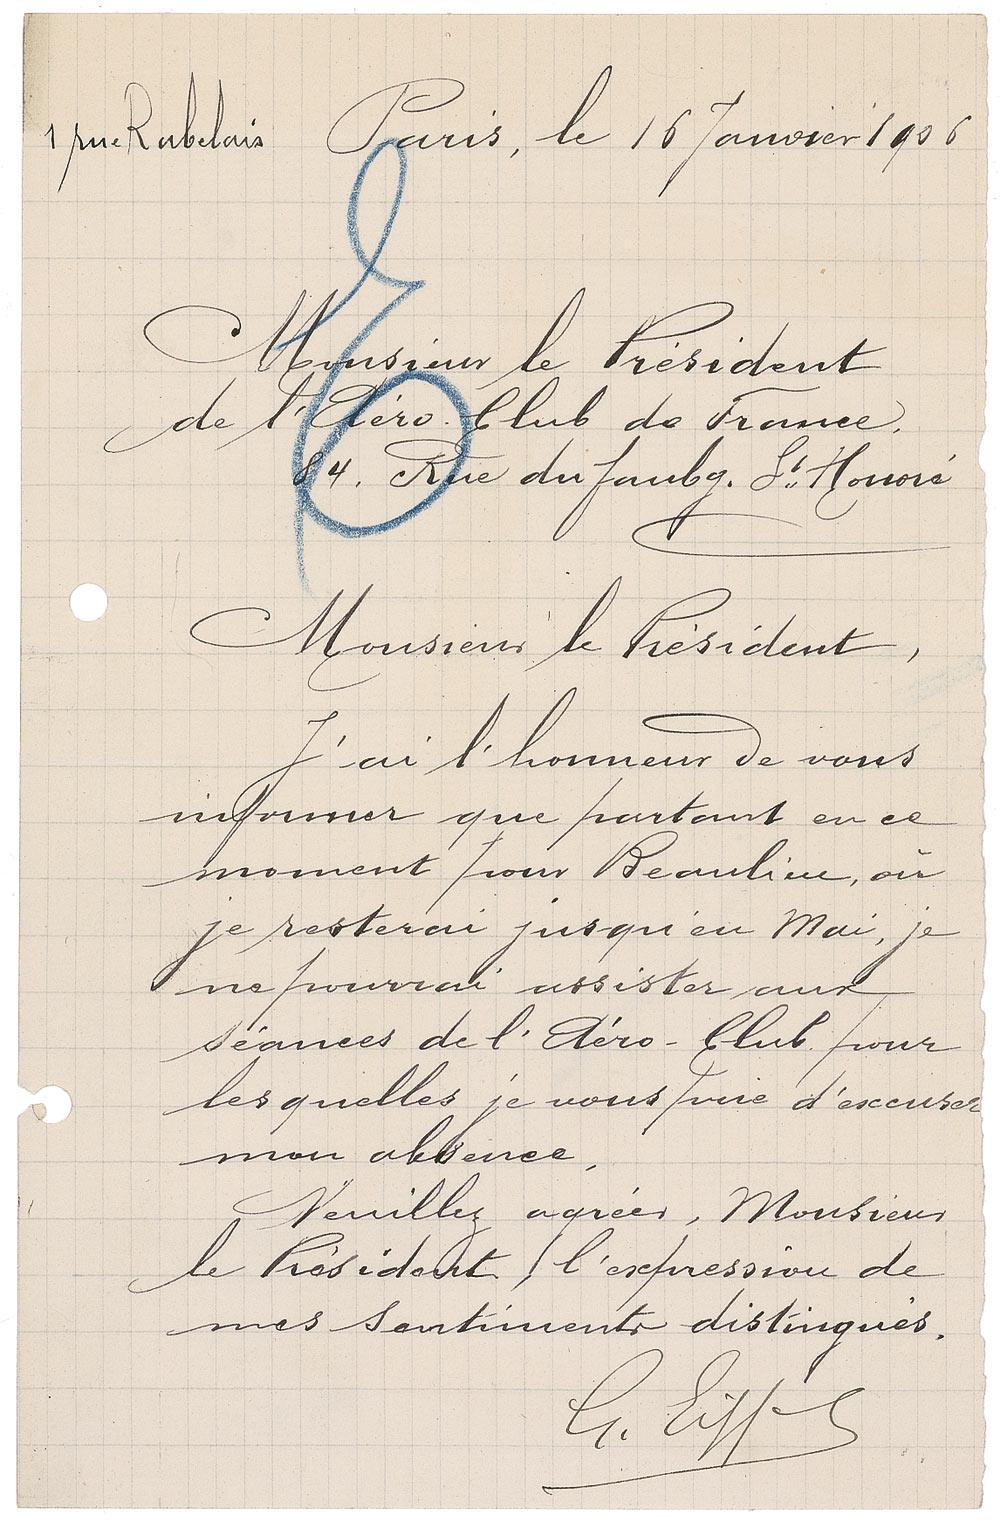 1 rue Rabelais Paris, le 16 Janvier 1906
Monsieur le Président
de l'Aéro-Club de France.
84. Rue du faubg. St. Honoré
Monsieur le Président,
J'ai l'honneur de vous
informer que partant en ce
moment pour Beaulieu, où
je resterai jusqu'en Mai, je
ne pourrai assister aux
séances de l'Aéro-Club pour
lesquelles je vous prie d'excuser
mon absence.
Veuillez agréer, Monsieur
le Président, l'expression de
mes sentiments distingués.
G. Eiffel